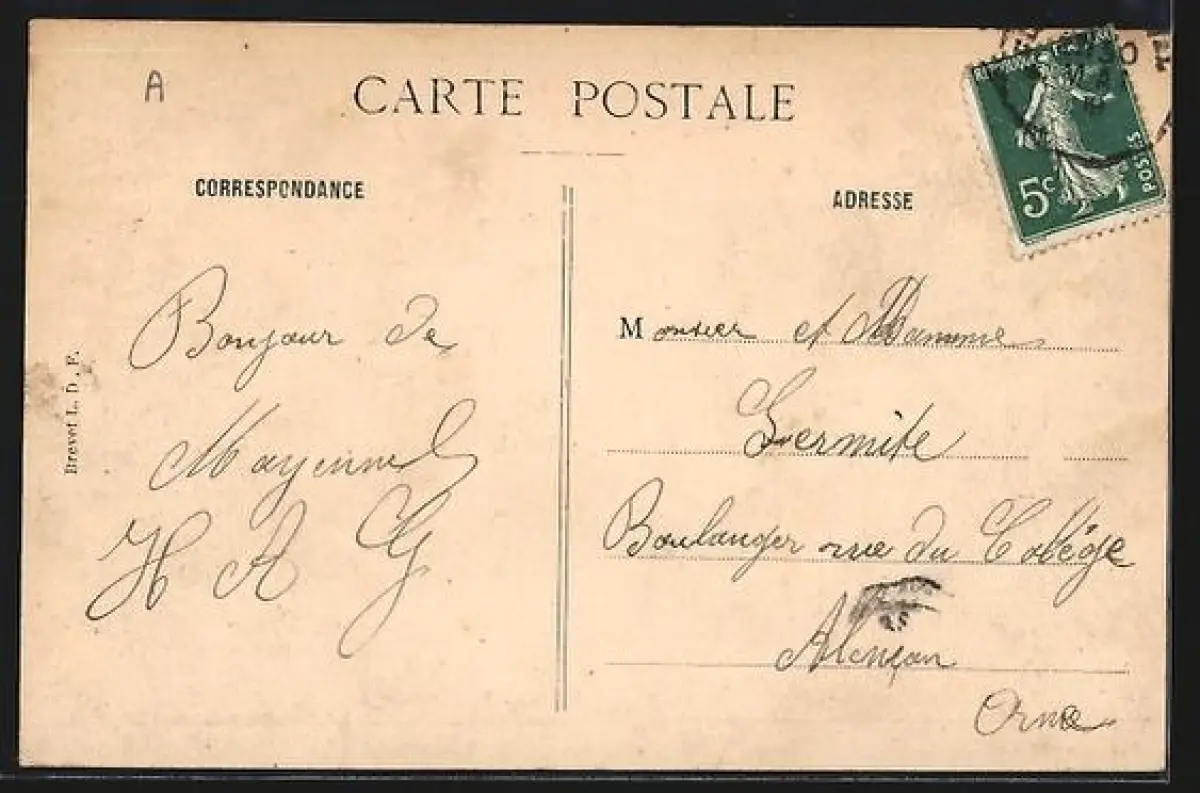 A
CARTE POSTALE
CORRESPONDANCE
ADRESSE
5c
POSTES
Bonjour de
Mayenne
H A G
Brevet L. D. F.
Monsieur et Mamme
Lermite
Boulanger rue du Colége
Alençon
Orne